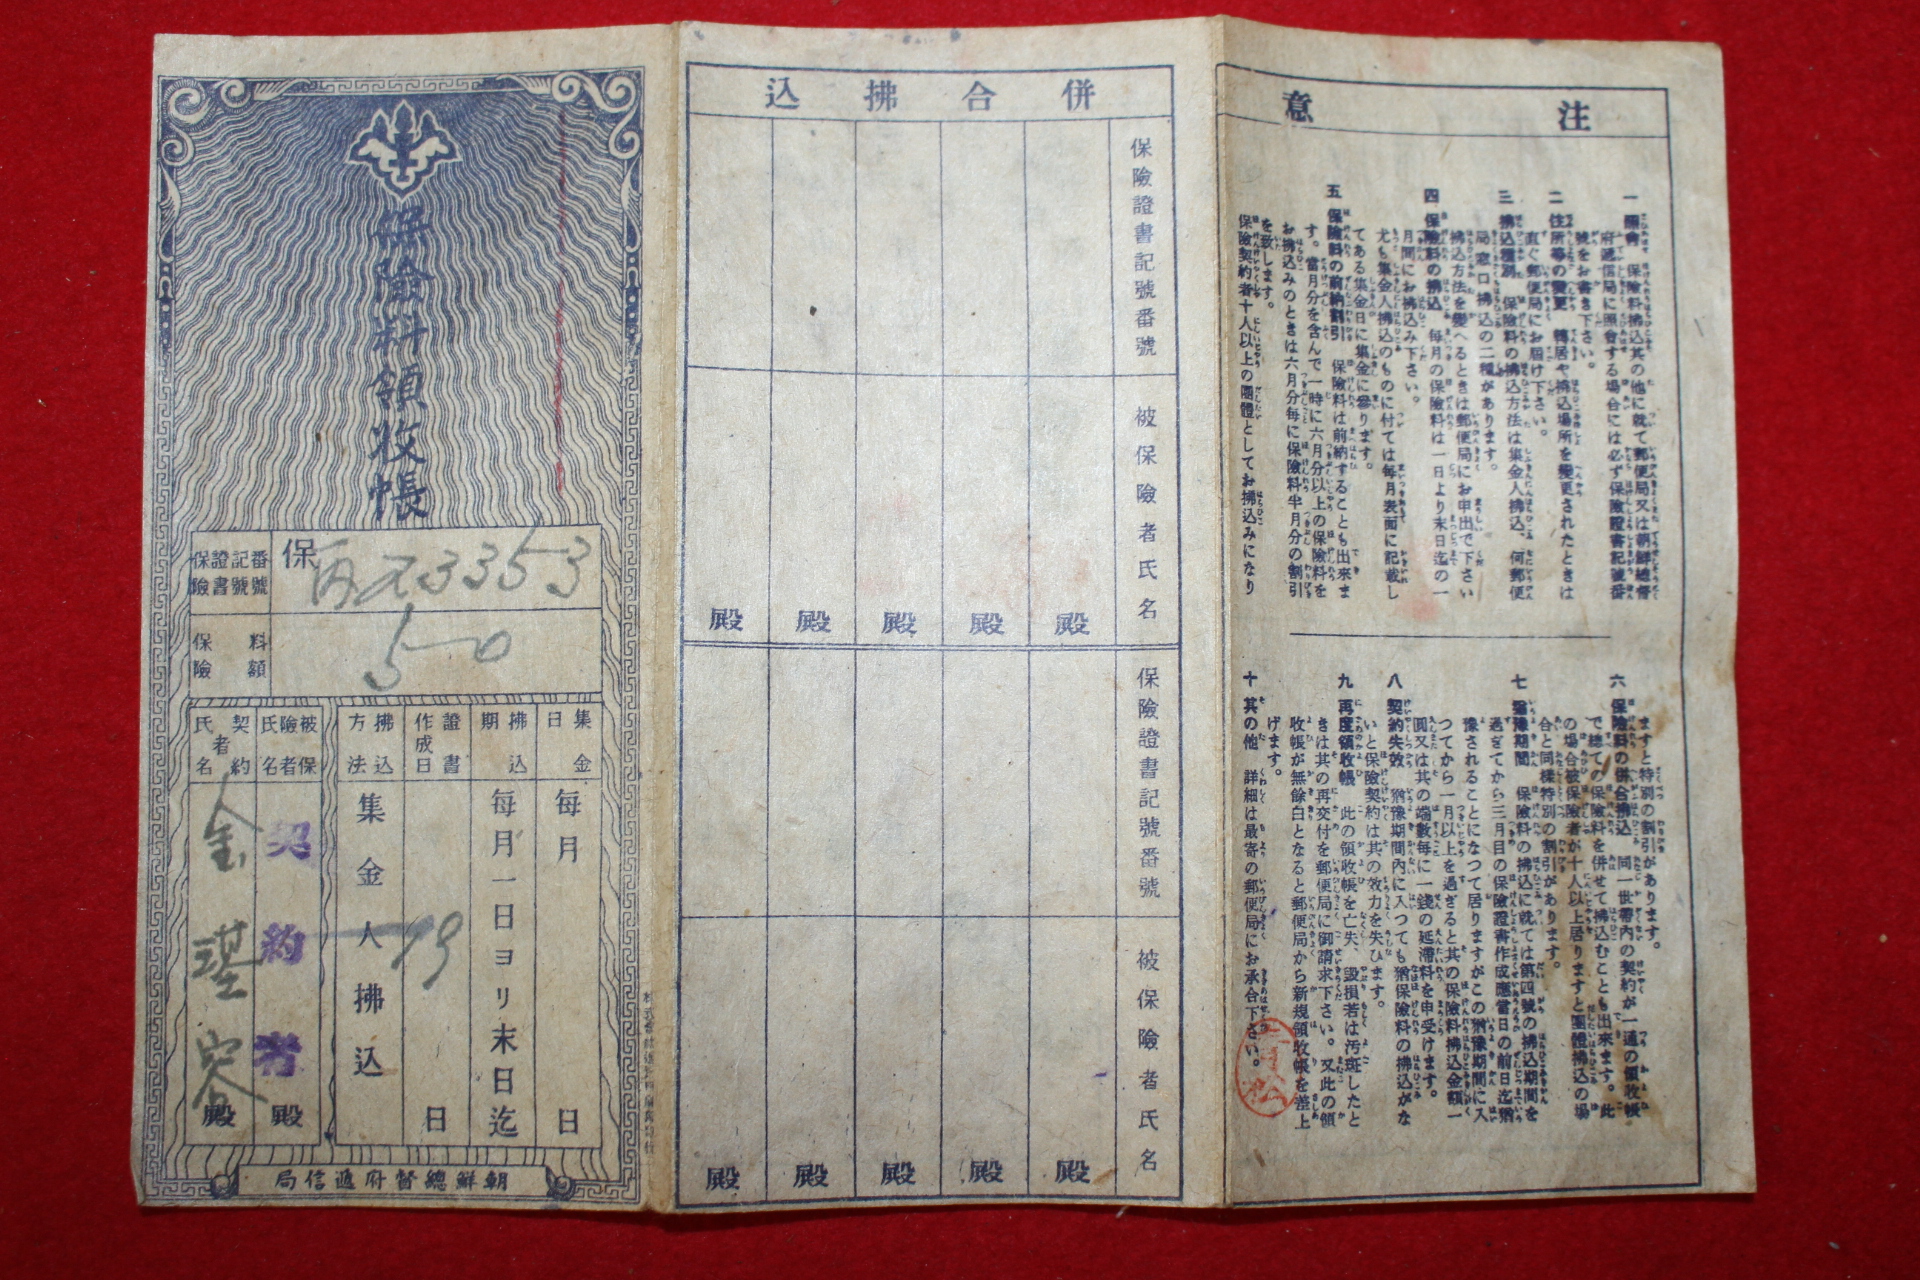 保險料領收帳
保險證書記號番號
保
33353
保險料額
50
集金日
每月
日
拂込期
每月一日ヨリ末日迄
證書作成日
日
拂込方法
集金人拂込
被保險者氏名
契約者
殿
契約者氏名
金
殿
朝鮮總督府遞信局
併合拂込
保險證書記號番號
被保險者氏名
殿
殿
殿
殿
殿
保險證書記號番號
被保險者氏名
殿
殿
殿
殿
殿
注意
一 照會 保險料拂込其の他に就て郵便局又は朝鮮總督
府遞信局に照會する場合には必ず保險證書記號番
號をお書き下さい。
二 住所等の變更 轉居や拂込場所を變更されたときは
直ぐ郵便局にお屆け下さい。
三 拂込種別 保險料の拂込方法は集金人拂込、何郵便
局窓口拂込の二種があります。
拂込方法を變へるときは郵便局にお申出で下さい
四 保險料の拂込 每月の保險料は一日より末日迄の一
月間にお拂込み下さい。
尤も集金人拂込のものに付ては每月表面に記載し
てある集金日に集金に參ります。
五 保險料の前納割引 保險料は前納することも出來ま
す。當月分を含んで一時に六月分以上の保險料を
お拂込みのときは六月分每に保險料半月分の割引
を致します。
保險契約者十人以上の團體としてお拂込みになり
ますと特別の割引があります。
六 保險料の併合拂込 同一世帶內の契約が一通の領收帳
で總ての保險料を併せて拂込むことも出來ます。此
の場合被保險者が十人以上居りますと團體拂込の場
合と同樣特別の割引があります。
七 猶豫期間 保險料の拂込に就ては第四號の拂込期間を
過ぎてから三月目の保險證書作成應當日の前日迄猶
豫されることになつて居りますがこの猶豫期間に入
つてから一月以上を過ぎると其の保險料拂込金額一
圓又は其の端數每に一錢の延滯料を申受けます。
八 契約失效 猶豫期間內に入つても猶保險料の拂込がな
いと保險契約は其の效力を失ひます。
九 再度領收帳 此の領收帳を亡失、毀損若は汚斑したと
きは其の再交付を郵便局に御請求下さい。又此の領
收帳が無餘白となると郵便局から新規領收帳を差上
げます。
十 其の他 詳細は最寄の郵便局にお承合下さい。